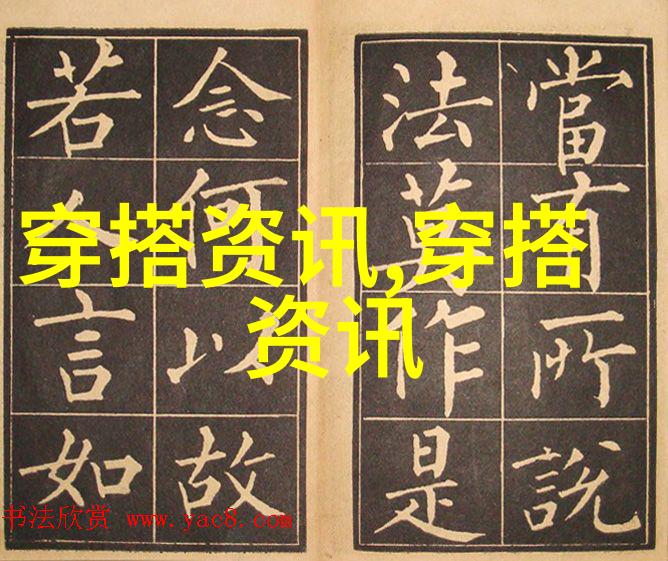 當有所說
法莫作是
念何以故
若人言如
穿搭资讯,穿搭
资讯
书法欣赏 www.yac8.com